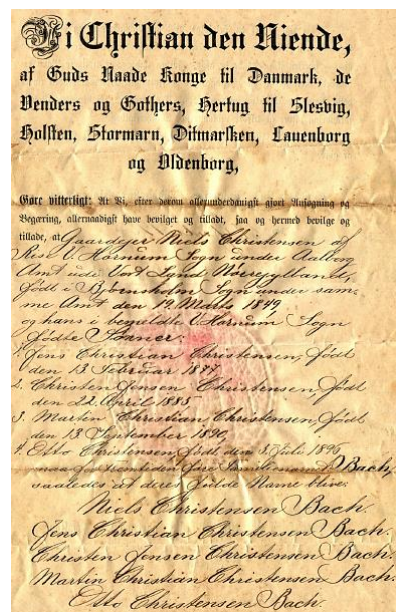 Vi Christian den Niende,
af Guds Naade Konge til Danmark, de
Venders og Gothers, Hertug til Slesvig,
Holsten, Stormarn, Ditmarsken, Lauenborg
og Oldenborg,
Gøre vitterligt: At Vi, efter derom allerunderdanigst gjort Ansøgning og
Begæring, allernaadigst have bevilget og tilladt, saa og hermed bevilge og
tillade, at Gaardejer Niels Christensen af
V. Hornum Sogn under Aalborg
Amt udi Vort Land Nørrejylland,
født i Bjørnsholm Sogn under sam-
me Amt den 19 Marts 1849,
og hans i bemeldte V. Hornum Sogn
fødte Sønner:
1. Jens Christian Christensen, født
den 13 Februar 1877
2. Christen Jensen Christensen, født
den 22 April 1885
3. Martin Christian Christensen, født
den 13 September 1890,
4. Otto Christensen, født den 5 Juli 1896
maa for Fremtiden føre Familienavnet Bach,
saaledes at deres fulde Navne blive:
Niels Christensen Bach.
Jens Christian Christensen Bach.
Christen Jensen Christensen Bach.
Martin Christian Christensen Bach.
Otto Christensen Bach.